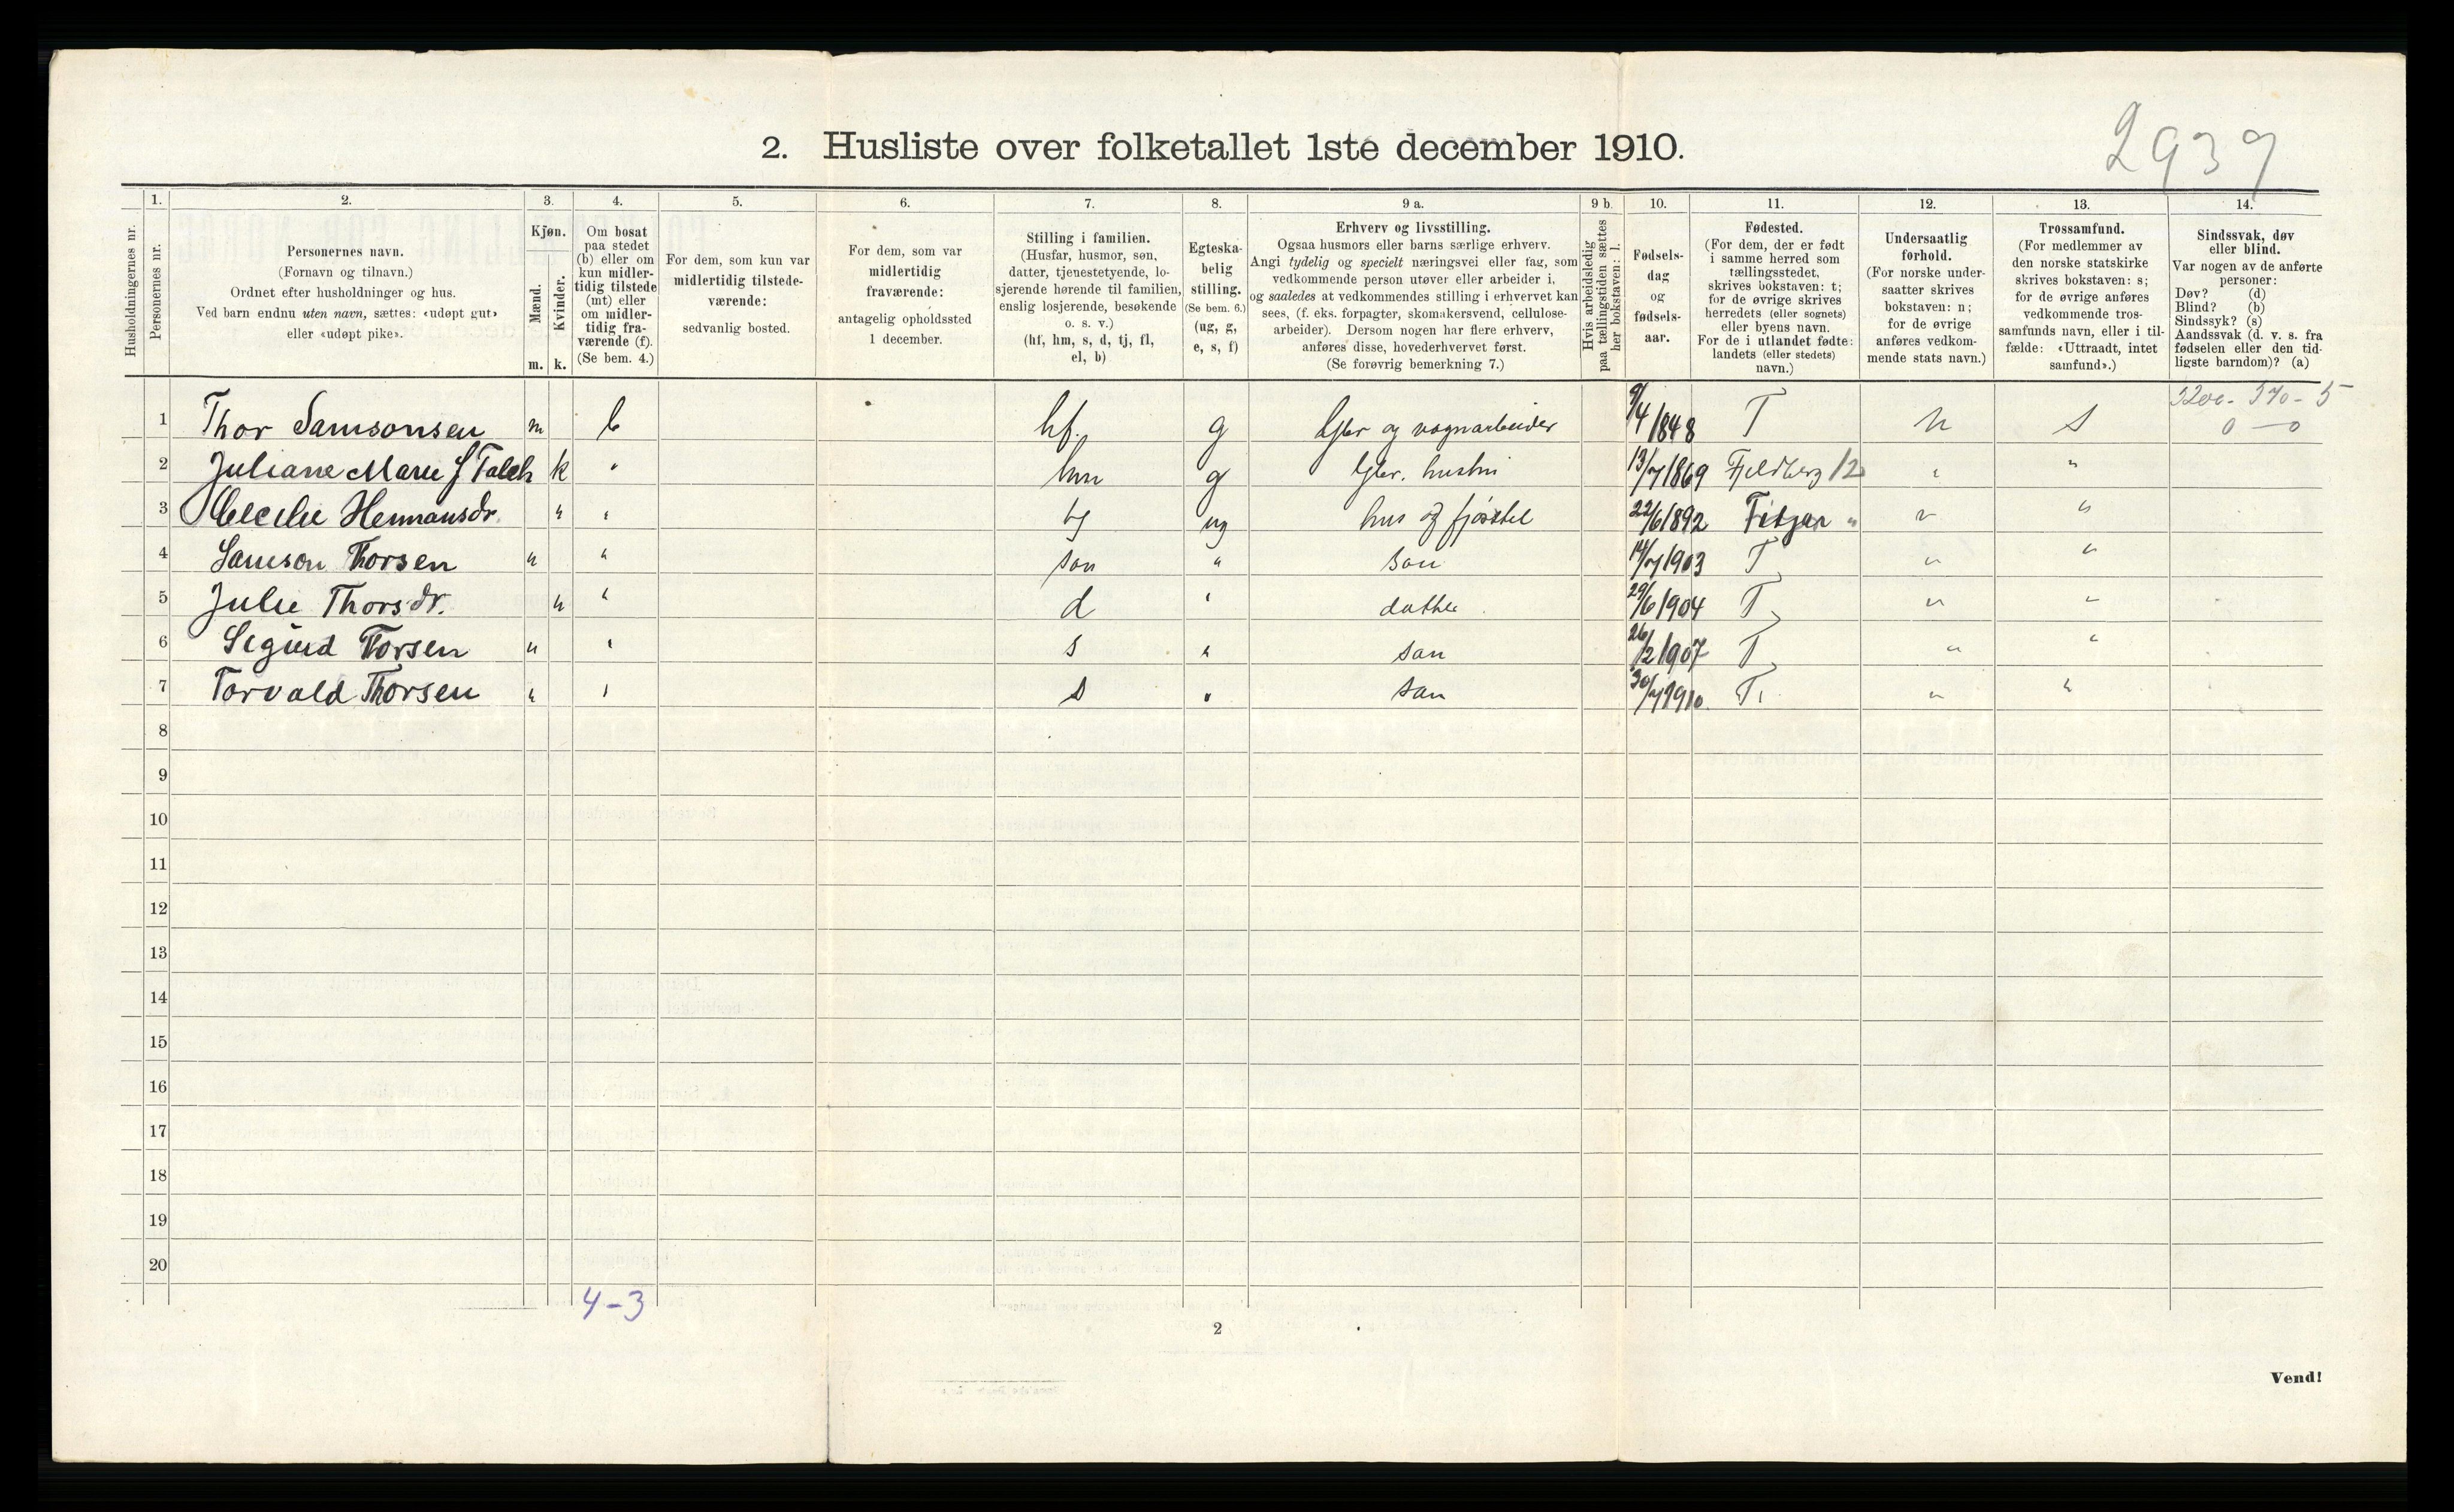 2939
2. Husliste over folketallet 1ste december 1910.
Husholdningernes nr.
1.
Personernes nr.
2.
Personernes navn.
(Fornavn og tilnavn.)
Ordnet efter husholdninger og hus.
Ved barn endnu uten navn, sættes: «udøpt gut»
eller «udøpt pike».
3.
Kjøn.
Mænd.
Kvinder.
m. k.
4.
Om bosat
paa stedet
(b) eller om
kun midler-
tidig tilstede
(mt) eller
om midler-
tidig fra-
værende (f).
(Se bem. 4.)
5.
For dem, som kun var
midlertidig tilstede-
værende:
sedvanlig bosted.
6.
For dem, som var
midlertidig
fraværende:
antagelig opholdssted
1 december.
7.
Stilling i familien.
(Husfar, husmor, søn,
datter, tjenestetyende, lo-
sjerende hørende til familien,
enslig losjerende, besøkende
o. s. v.)
(hf, hm, s, d, tj, fl,
el, b)
8.
Egteska-
belig
stilling.
(Se bem. 6.)
(ug, g,
e, s, f)
9 a.
Erhverv og livsstilling.
Ogsaa husmors eller barns særlige erhverv.
Angi tydelig og specielt næringsvei eller fag, som
vedkommende person utøver eller arbeider i,
og saaledes at vedkommendes stilling i erhvervet kan
sees, (f. eks. forpagter, skomakersvend, cellulose-
arbeider). Dersom nogen har flere erhverv,
anføres disse, hovederhvervet først.
(Se forøvrig bemerkning 7.)
9 b.
Hvis arbeidsledig
paa tællingstiden sættes
her bokstaven: l.
10.
Fødsels-
dag
og
fødsels-
aar.
11.
Fødested.
(For dem, der er født
i samme herred som
tællingsstedet,
skrives bokstaven: t;
for de øvrige skrives
herredets (eller sognets)
eller byens navn.
For de i utlandet fødte:
landets (eller stedets)
navn.)
12.
Undersaatlig
forhold.
(For norske under-
saatter skrives
bokstaven: n;
for de øvrige
anføres vedkom-
mende stats navn.)
13.
Trossamfund.
(For medlemmer av
den norske statskirke
skrives bokstaven: s;
for de øvrige anføres
vedkommende tros-
samfunds navn, eller i til-
fælde: «Uttraadt, intet
samfund».)
14.
Sindssvak, døv
eller blind.
Var nogen av de anførte
personer:
Døv? (d)
Blind? (b)
Sindssyk? (s)
Aandssvak (d. v. s. fra
fødselen eller den tid-
ligste barndom)? (a)
0 — 0
1 Thor Samsonsen m b hf. g Gbr og vognarbeider 9/4 1848 T n s
2 Juliane Marie J Falch k " hm g Gbr. hustru 13/7 1869 Fjeldberg 12 " "
3 Cecilie Hermansdr. " " tj ug hus og fjøsstel 22/6 1892 Fitjar " " "
4 Samson Thorsen " " søn " søn 14/7 1903 T " "
5 Julie Thorsdr. " " d " datter 29/6 1904 T " "
6 Sigurd Torsen " " s " søn 26/2 1907 T " "
7 Torvald Thorsen " " s " søn 30/7 1910. T " "
8
9
10
11
12
13
14
15
16
17
18
19
20
4-3
2
Vend!